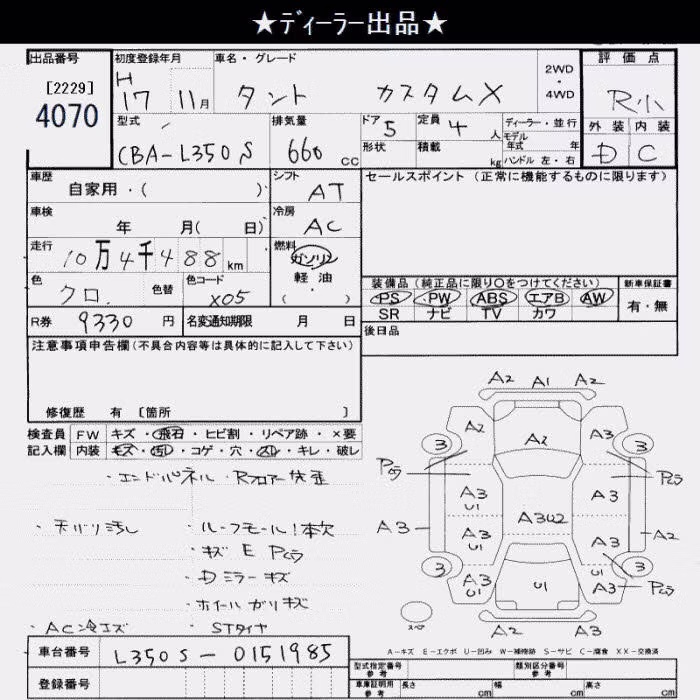 ★ディーラー出品★
出品番号
[2229]
4070
初度登録年月
H
17 11月
車名・グレード
タント カスタムX
2WD
・
4WD
評価点
R小
外装 内装
D C
型式
CBA-L350S
排気量
660 cc
ドア
5
形状
定員
4 人
積載
kg
ディーラー・並行
モデル
年式 年
ハンドル 左・右
車歴
自家用・( )
シフト
AT
セールスポイント (正常に機能するものに限ります)
車検
年 月( 日)
冷房
AC
走行
10万4千488 km
燃料
ガソリン
軽・油
( ・ )
色
クロ.
色替
色コード
X05
装備品 (純正品に限り○をつけてください)
PS PW ABS エアB AW
SR ナビ TV カワ
新車保証書
有・無
R券
9330 円
名変通知期限 月 日
後日品
注意事項申告欄 (不具合内容等は具体的に記入して下さい)
修復歴 有 [箇所 ]
検査員 FW キズ・飛石・ヒビ割・リペア跡・×要
記入欄 内装 キズ・汚レ・コゲ・穴・スレ・キレ・破レ
・エンドパネル・Rフロアー
・天バリ汚レ
・ルーフモール1本欠
・キズ E Pムラ
・Dミラーキズ
・ホイールガリキズ
・AC冷エズ
・STタイヤ
A2 A1 A2
A2 A2 A3
3 3
Pムラ Pムラ
A3 U1 A3
A3 A3U2 A2
A3 U1 A3
3 3
A3 U1 U1 U1 A3 Pムラ
スペア
A2 A3
A-キズ E-エクボ U-凹み W-補修跡 S-サビ C-腐食 XX-交換済
車台番号
L350S-0151985
登録番号
型式指定番号
参考
類別区分番号
参考
車庫証明用
参考
長さ cm 幅 cm 高さ cm